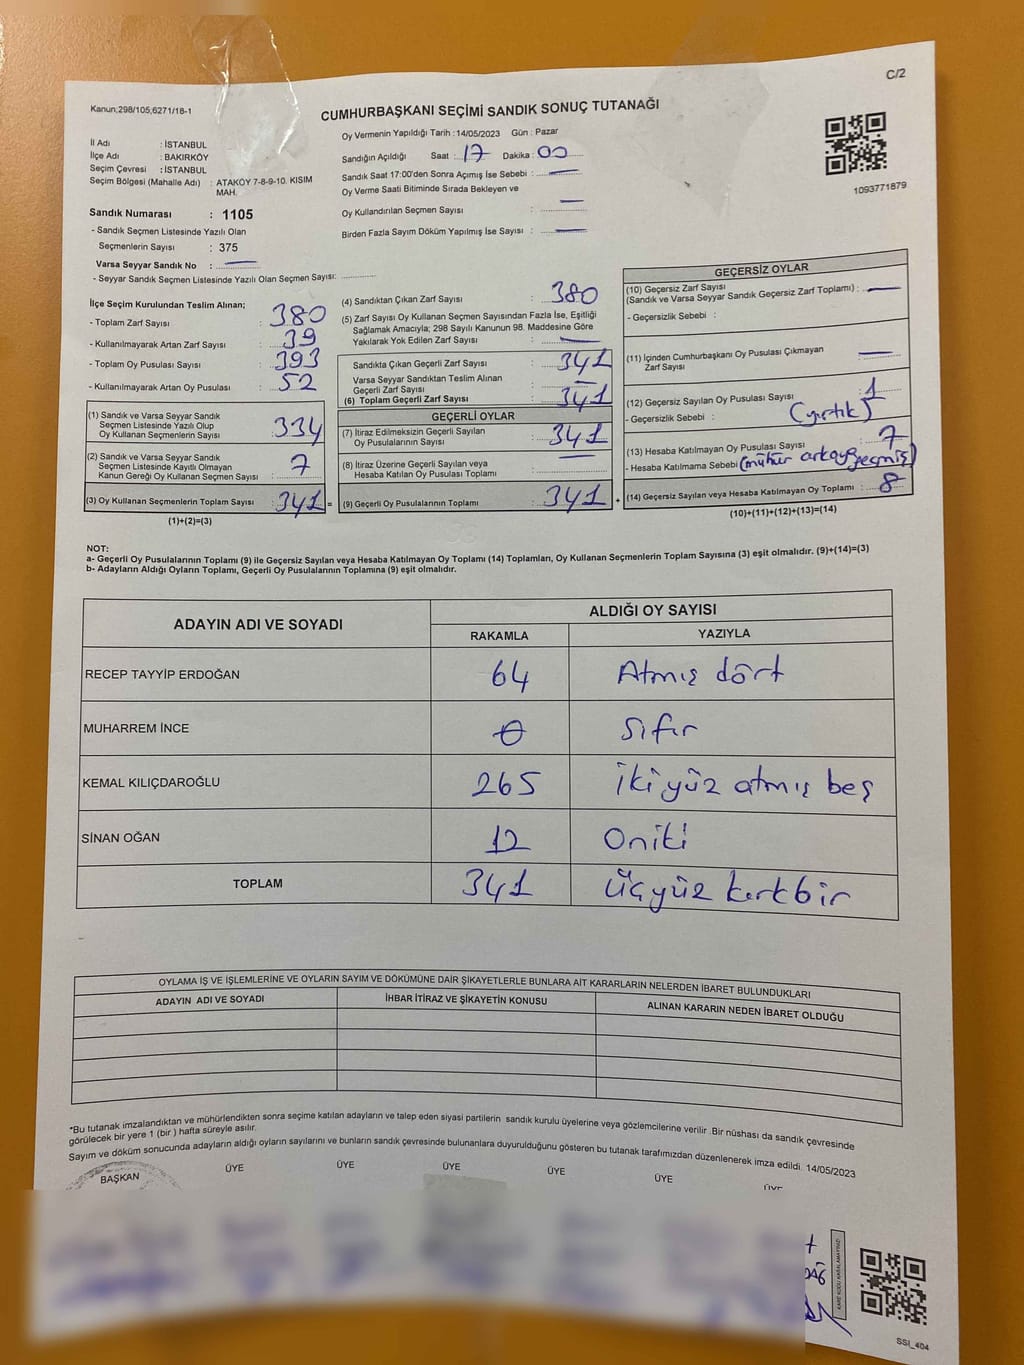 C/2
Kanun;298/105,6271/18-1
CUMHURBAŞKANI SEÇİMİ SANDIK SONUÇ TUTANAĞI
Oy Vermenin Yapıldığı Tarih :14/05/2023 Gün : Pazar
İl Adı : İSTANBUL
İlçe Adı : BAKIRKÖY
Seçim Çevresi : İSTANBUL
Seçim Bölgesi (Mahalle Adı) : ATAKÖY 7-8-9-10. KISIM MAH.
Sandığın Açıldığı Saat : 17 Dakika : 00
Sandık Saat 17:00'den Sonra Açımış İse Sebebi : —
Oy Verme Saati Bitiminde Sırada Bekleyen ve
Oy Kullandırılan Seçmen Sayısı : —
Birden Fazla Sayım Döküm Yapılmış İse Sayısı : —
1093771879
Sandık Numarası : 1105
- Sandık Seçmen Listesinde Yazılı Olan
Seçmenlerin Sayısı : 375
Varsa Seyyar Sandık No : —
- Seyyar Sandık Seçmen Listesinde Yazılı Olan Seçmen Sayısı:
İlçe Seçim Kurulundan Teslim Alınan;
- Toplam Zarf Sayısı : 380
- Kullanılmayarak Artan Zarf Sayısı : 39
- Toplam Oy Pusulası Sayısı : 393
- Kullanılmayarak Artan Oy Pusulası : 52
(1) Sandık ve Varsa Seyyar Sandık
Seçmen Listesinde Yazılı Olup
Oy Kullanan Seçmenlerin Sayısı : 334
(2) Sandık ve Varsa Seyyar Sandık
Seçmen Listesinde Kayıtlı Olmayan
Kanun Gereği Oy Kullanan Seçmen Sayısı : 7
(3) Oy Kullanan Seçmenlerin Toplam Sayısı : 341 =
(1)+(2)=(3)
(4) Sandıktan Çıkan Zarf Sayısı : 380
(5) Zarf Sayısı Oy Kullanan Seçmen Sayısından Fazla İse, Eşitliği
Sağlamak Amacıyla; 298 Sayılı Kanunun 98. Maddesine Göre
Yakılarak Yok Edilen Zarf Sayısı : —
Sandıkta Çıkan Geçerli Zarf Sayısı : 341
Varsa Seyyar Sandıktan Teslim Alınan
Geçerli Zarf Sayısı : —
(6) Toplam Geçerli Zarf Sayısı : 341
GEÇERLİ OYLAR
(7) İtiraz Edilmeksizin Geçerli Sayılan
Oy Pusulalarının Sayısı : 341
(8) İtiraz Üzerine Geçerli Sayılan veya
Hesaba Katılan Oy Pusulası Toplamı : —
(9) Geçerli Oy Pusulalarının Toplamı : 341 +
GEÇERSİZ OYLAR
(10) Geçersiz Zarf Sayısı
(Sandık ve Varsa Seyyar Sandık Geçersiz Zarf Toplamı) : —
- Geçersizlik Sebebi :
(11) İçinden Cumhurbaşkanı Oy Pusulası Çıkmayan
Zarf Sayısı : —
(12) Geçersiz Sayılan Oy Pusulası Sayısı : 1
- Geçersizlik Sebebi : (yırtık)
(13) Hesaba Katılmayan Oy Pusulası Sayısı : 7
- Hesaba Katılmama Sebebi (mühür arkaya geçmiş)
(14) Geçersiz Sayılan veya Hesaba Katılmayan Oy Toplamı : 8
(10)+(11)+(12)+(13)=(14)
NOT:
a- Geçerli Oy Pusulalarının Toplamı (9) ile Geçersiz Sayılan veya Hesaba Katılmayan Oy Toplamı (14) Toplamları, Oy Kullanan Seçmenlerin Toplam Sayısına (3) eşit olmalıdır. (9)+(14)=(3)
b- Adayların Aldığı Oyların Toplamı, Geçerli Oy Pusulalarının Toplamına (9) eşit olmalıdır.
ADAYIN ADI VE SOYADI ALDIĞI OY SAYISI
RAKAMLA YAZIYLA
RECEP TAYYİP ERDOĞAN 64 Atmış dört
MUHARREM İNCE 0 Sıfır
KEMAL KILIÇDAROĞLU 265 iki yüz atmış beş
SİNAN OĞAN 12 Oniki
TOPLAM 341 üçyüz kırkbir
OYLAMA İŞ VE İŞLEMLERİNE VE OYLARIN SAYIM VE DÖKÜMÜNE DAİR ŞİKAYETLERLE BUNLARA AİT KARARLARIN NELERDEN İBARET BULUNDUKLARI
ADAYIN ADI VE SOYADI İHBAR İTİRAZ VE ŞİKAYETİN KONUSU ALINAN KARARIN NEDEN İBARET OLDUĞU
*Bu tutanak imzalandıktan ve mühürlendikten sonra seçime katılan adayların ve talep eden siyasi partilerin sandık kurulu üyelerine veya gözlemcilerine verilir .Bir nüshası da sandık çevresinde
görülecek bir yere 1 (bir ) hafta süreyle asılır.
Sayım ve döküm sonucunda adayların aldığı oyların sayılarını ve bunların sandık çevresinde bulunanlara duyurulduğunu gösteren bu tutanak tarafımızdan düzenlenerek imza edildi. 14/05/2023
BAŞKAN ÜYE ÜYE ÜYE ÜYE ÜYE ÜYE
SSI_404